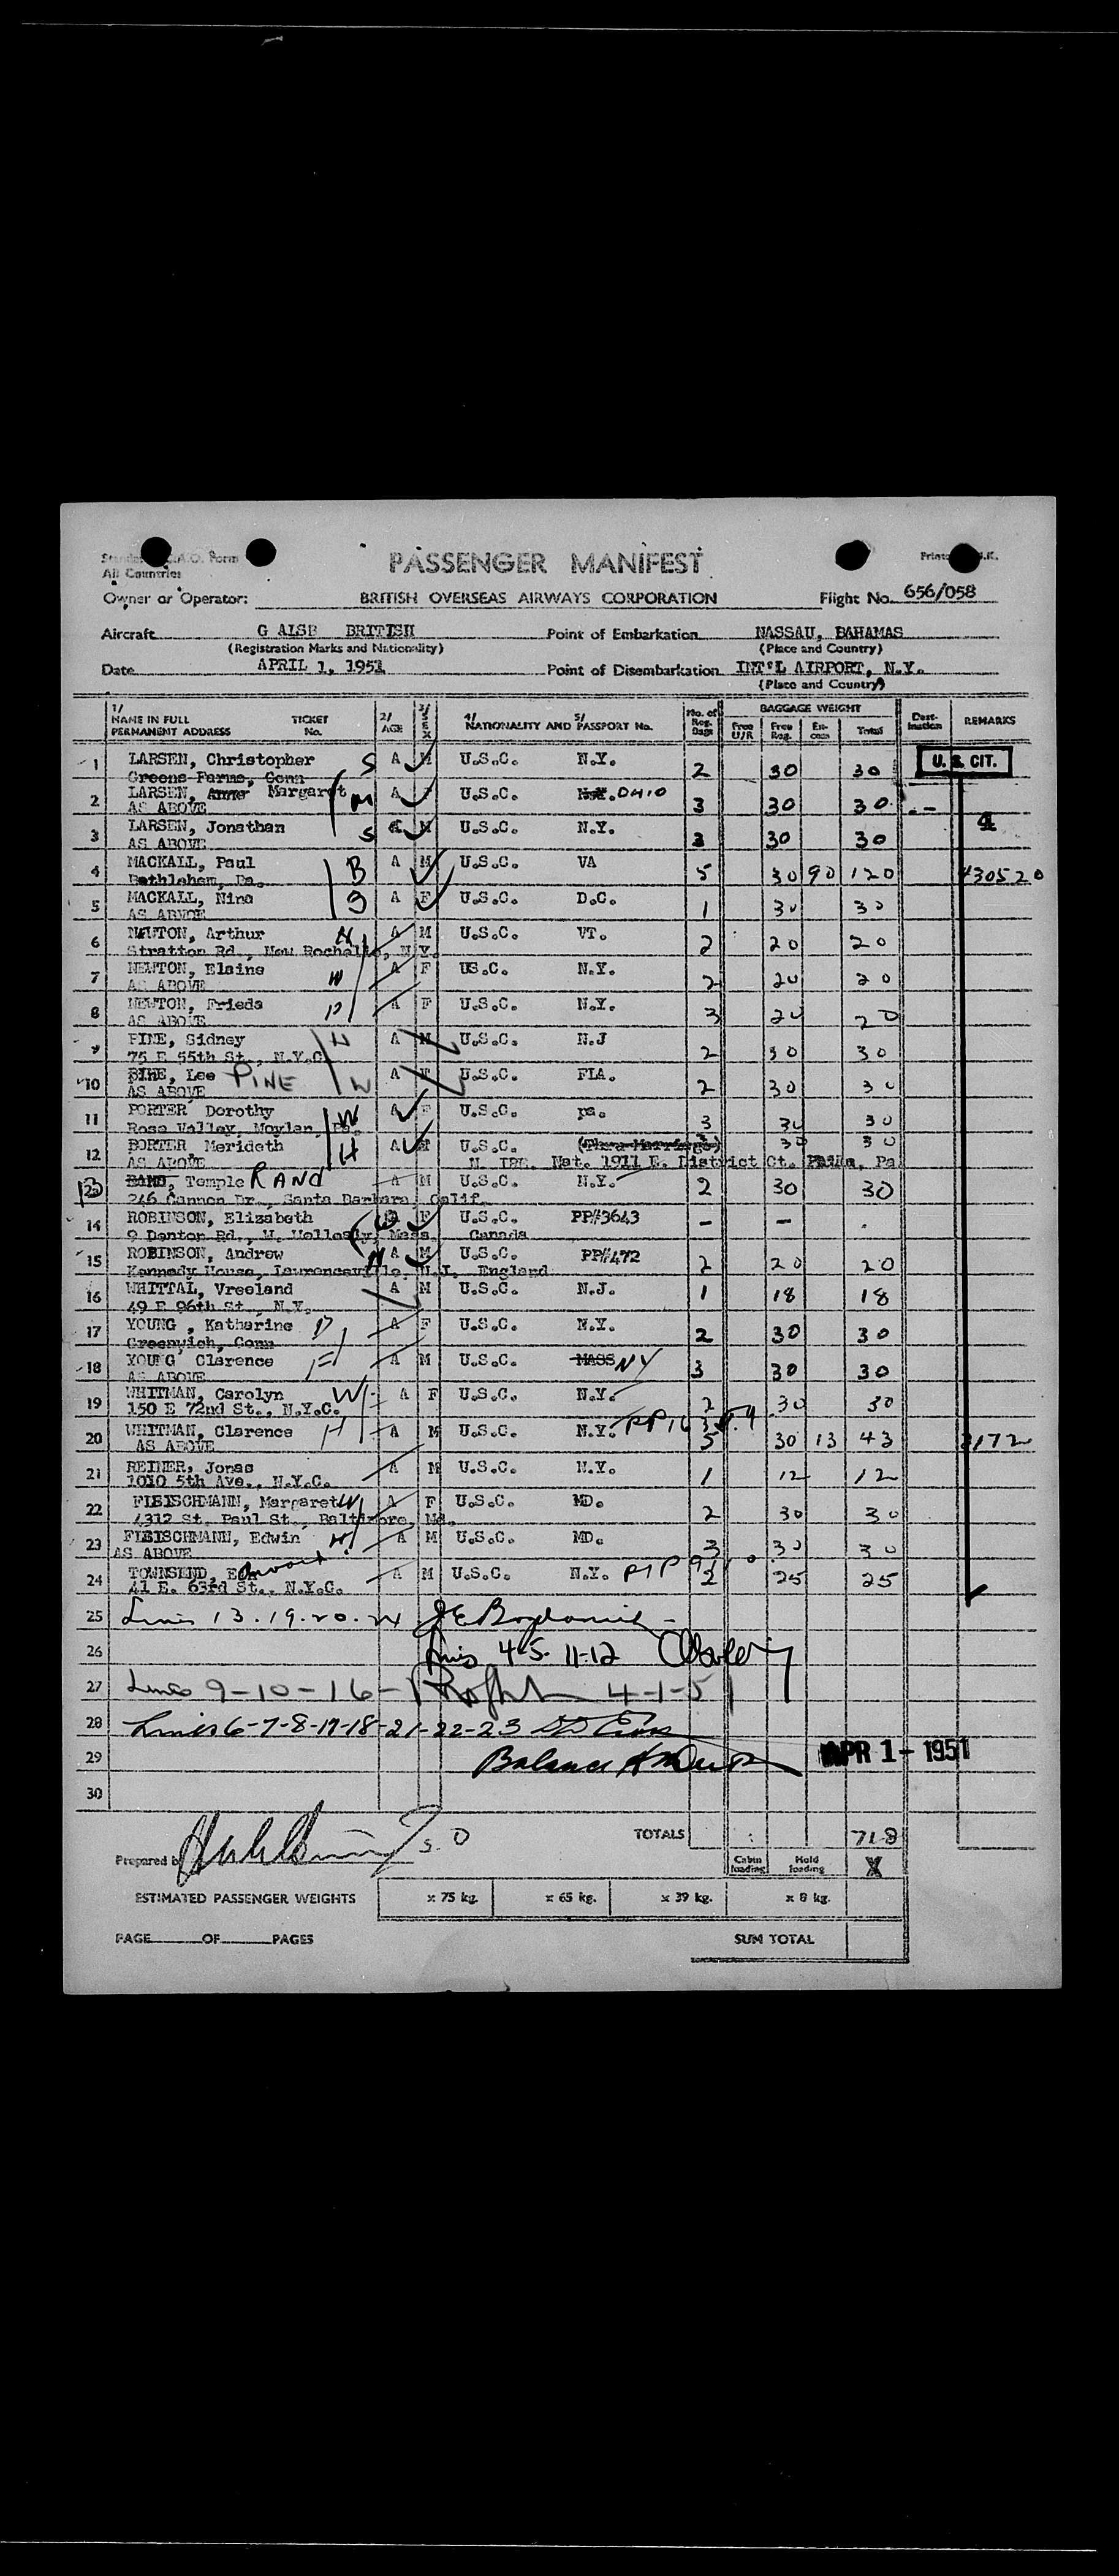 All Countries
PASSENGER MANIFEST
Owner or Operator: BRITISH OVERSEAS AIRWAYS CORPORATION Flight No. 656/058
Aircraft BRITISH Point of Embarkation NASSAU, BAHAMAS
(Registration Marks and Nationality) (Place and Country)
Date APRIL 1, 1951 Point of Disembarkation INT'L AIRPORT, N.Y.
(Place and Country)
1/ NAME IN FULL PERMANENT ADDRESS TICKET No. 2/ AGE 3/ SEX 4/ NATIONALITY AND 5/ PASSPORT No. No. of Reg. Bags BAGGAGE WEIGHT Free U/R Free Reg. Ex-cess Total Dest-ination REMARKS
1 LARSEN, Christopher S A M U.S.C. N.Y. 2 30 30 U. S. CIT.
Greens Farms, Conn
2 LARSEN, Margaret M A F U.S.C. OHIO 3 30 30
AS ABOVE
3 LARSEN, Jonathan S M U.S.C. N.Y. 3 30 30 4
AS ABOVE
4 MACKALL, Paul B A M U.S.C. VA 5 30 90 120 430520
Bethlehem, Pa.
5 MACKALL, Nina A F U.S.C. D.C. 1 30 30
AS ABVOE
6 NEWTON, Arthur H A M U.S.C. VT. 2 20 20
Stratton Rd., New Rochelle, N.Y.
7 NEWTON, Elaine W A F US.C. N.Y. 2 20 20
AS ABOVE
8 NEWTON, Frieda D A F U.S.C. N.Y. 3 20 20
AS ABOVE
9 PINE, Sidney H A M U.S.C. N.J 2 30 30
75 E 55th St., N.Y.C.
10 Lee PINE W A F U.S.C. FLA. 2 30 30
AS ABOVE
11 PORTER Dorothy W A F U.S.C. pa. 3 30 30
Rose Valley, Moylan, Pa.
12 Merideth H A M U.S.C. 30 30
AS ABOVE Nat. 1911 E. District Ct. Phila, Pa
13 Temple RAND A M U.S.C. N.Y. 2 30 30
246 Cannon Dr., Santa Barbara, Calif.
14 ROBINSON, Elizabeth W F U.S.C. PP#3643 - -
9 Denton Rd., W. Wellesly, Mass. Canada
15 ROBINSON, Andrew H A M U.S.C. PP#472 2 20 20
Kennedy House, Lawrenceville, N.J. England
16 WHITTAL, Vreeland A M U.S.C. N.J. 1 18 18
49 E 96th St., N.Y.
17 YOUNG , Katharine D A F U.S.C. N.Y. 2 30 30
Greenwich, Conn
18 YOUNG Clarence F A M U.S.C. MASS NY 3 30 30
AS ABOVE
19 WHITMAN, Carolyn W A F U.S.C. N.Y. 2 30 30
150 E 72nd St., N.Y.C.
20 WHITMAN, Clarence H A M U.S.C. N.Y. 5 30 13 43 3172
AS ABOVE
21 REINER, Jonas A M U.S.C. N.Y. 1 12 12
1010 5th Ave., N.Y.C.
22 FLEISCHMANN, Margaret W A F U.S.C. MD. 2 30 30
4312 St. Paul St., Baltimore, Md.
23 FLEISCHMANN, Edwin H A M U.S.C. MD. 3 30 30
AS ABOVE
24 TOWNSEND, A M U.S.C. N.Y. 2 25 25
41 E. 63rd St., N.Y.C.
25 Lines 13.19.20.24
26 Lines 4-5-11-12
27 Lines 9-10-16- 4-1-51
28 Lines 6-7-8-17-18-21-22-23
29 Balance APR 1 - 1951
30
TOTALS 718
Prepared by Cabin loading Hold loading X
ESTIMATED PASSENGER WEIGHTS x 75 kg. x 65 kg. x 39 kg. x 8 kg.
PAGE OF PAGES SUM TOTAL